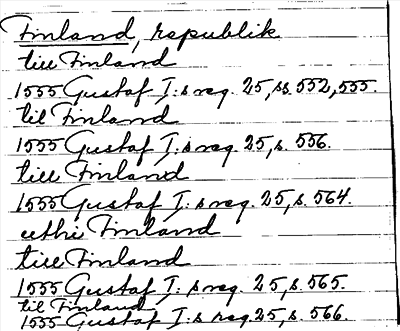 Finland, republik
till Finland
1555 Gustaf I:s reg. 25, ss. 552, 555.
til Finland
1555 Gustaf I:s reg. 25, s. 556.
till Finland
1555 Gustaf I:s reg. 25, s. 564.
uthi Finland
till Finland
1555 Gustaf I:s reg. 25, s. 565.
til Finland
1555 Gustaf I:s reg. 25, s. 566.